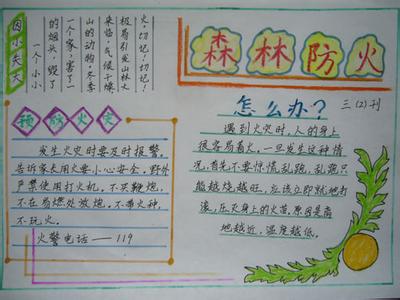 森林防火
因小失大
一个小小
的烟头，毁了
一个家，害了一
山的动物。冬季
来临，气候干燥
极易引发山林火
火，切记！切记！
预防火灾
发生火灾时要及时报警。
告诉家长用火要小心安全，野外
严禁使用打火机，不买鞭炮，
不在易燃处放炮，不带火种，
不玩火。
火警电话——119
怎么办？
三(2)刊
遇到火灾时，人的身上
很容易着火，一旦发生这种情
况，首先不要惊慌乱跑，乱跑只
能越烧越旺，应该立即就地打
滚，压灭身上的火苗，原因是离
地越近，温度越低。